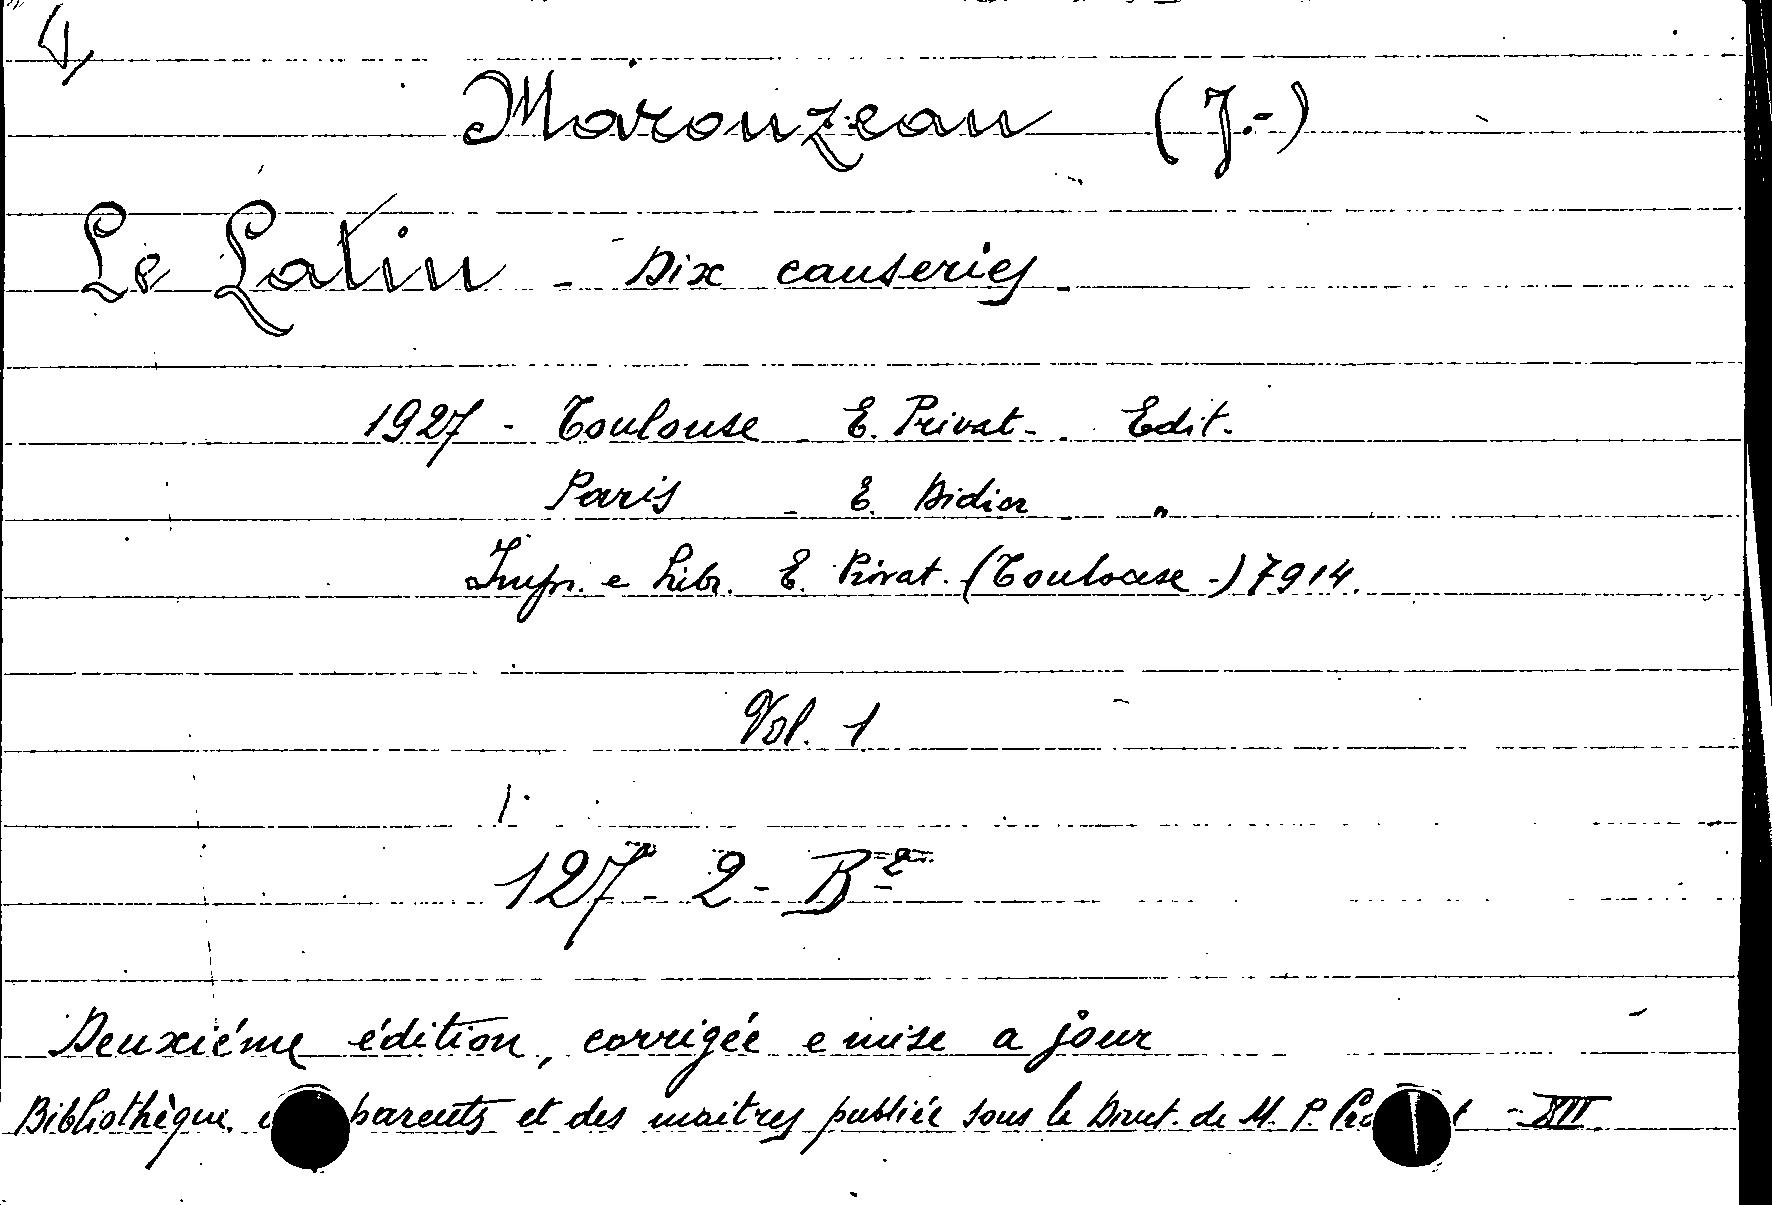 Marouzeau (J.-)
Le Latin - Dix causeries -
1927 - Toulouse - E. Privat - Edit.
Paris - E. Didier "
Impr. e Libr. E. Privat. (Toulouse -) 7914.
Vol. 1
127 - 2 - B
Deuxiéme édition, corrigée e mise a jour
Bibliothèque parents et des maitres publiée sous la Direct. de M. P.